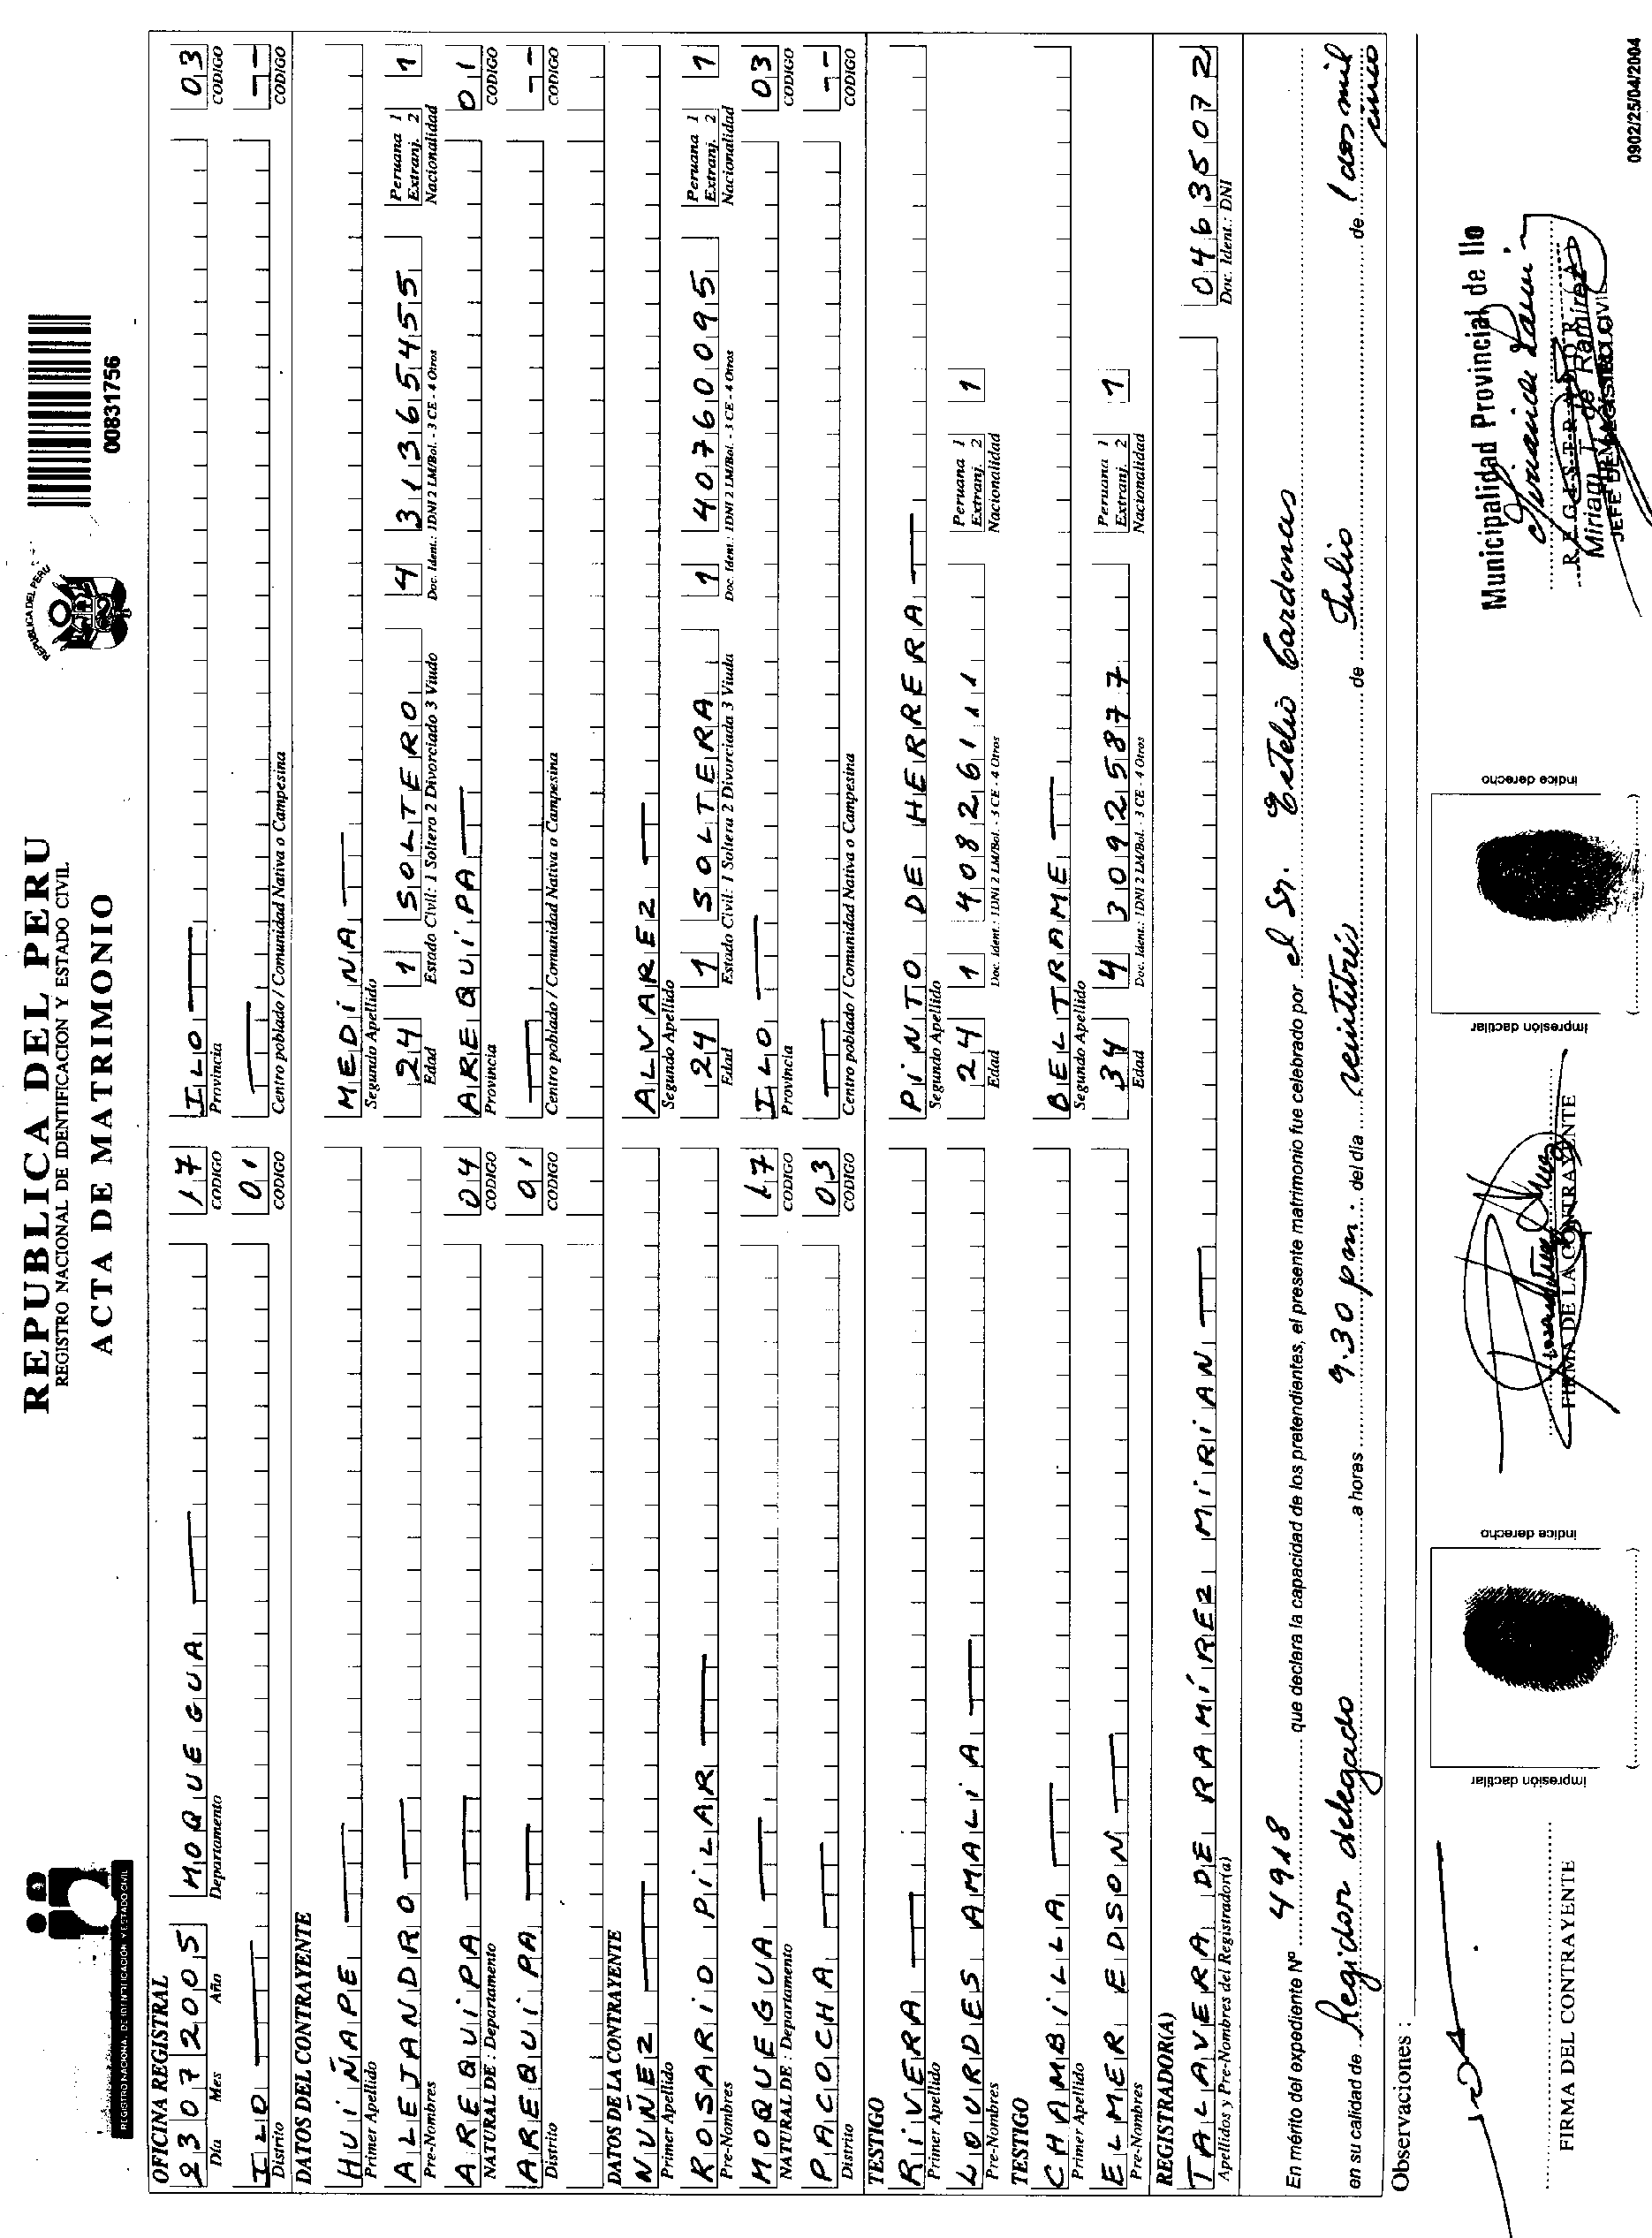 REPUBLICA DEL PERU
REGISTRO NACIONAL DE IDENTIFICACION Y ESTADO CIVIL
ACTA DE MATRIMONIO
REGISTRO NACIONAL DE IDENTIFICACION Y ESTADO CIVIL
REPUBLICA DEL PERU
00831756
OFICINA REGISTRAL
23 07 2005 MOQUEGUA 17 ILO 03
Día Mes Año Departamento CODIGO Provincia CODIGO
ILO 01 --
Distrito CODIGO Centro poblado / Comunidad Nativa o Campesina CODIGO
DATOS DEL CONTRAYENTE
HUIÑAPE MEDINA
Primer Apellido Segundo Apellido
ALEJANDRO 24 1 SOLTERO 4 313654 55 Peruana 1 Extranj. 2 1
Pre-Nombres Edad Estado Civil: 1 Soltero 2 Divorciado 3 Viudo Doc. Ident.: 1DNI 2 LM/Bol. - 3 CE - 4 Otros Nacionalidad
AREQUIPA 04 AREQUIPA 01
NATURAL DE : Departamento CODIGO Provincia CODIGO
AREQUIPA 01 --
Distrito CODIGO Centro poblado / Comunidad Nativa o Campesina CODIGO
DATOS DE LA CONTRAYENTE
NUÑEZ ALVAREZ
Primer Apellido Segundo Apellido
ROSARIO PILAR 24 1 SOLTERA 1 40760095 Peruana 1 Extranj. 2 1
Pre-Nombres Edad Estado Civil: 1 Soltera 2 Divorciada 3 Viuda Doc. Ident.: 1DNI 2 LM/Bol. - 3 CE - 4 Otros Nacionalidad
MOQUEGUA 17 ILO 03
NATURAL DE : Departamento CODIGO Provincia CODIGO
PACOCHA 03 --
Distrito CODIGO Centro poblado / Comunidad Nativa o Campesina CODIGO
TESTIGO
RIVERA PINTO DE HERRERA
Primer Apellido Segundo Apellido
LOURDES AMALIA 24 1 40826111 Peruana 1 Extranj. 2 1
Pre-Nombres Edad Doc. Ident.: 1DNI 2 LM/Bol. - 3 CE - 4 Otros Nacionalidad
TESTIGO
CHAMBILLA BELTRAME
Primer Apellido Segundo Apellido
ELMER EDSON 34 4 30925877 Peruana 1 Extranj. 2 1
Pre-Nombres Edad Doc. Ident.: 1DNI 2 LM/Bol. - 3 CE - 4 Otros Nacionalidad
REGISTRADOR(A)
TALAVERA DE RAMÍREZ MIRIAN 04635072
Apellidos y Pre-Nombres del Registrador(a) Doc. Ident.: DNI
En mérito del expediente Nº 4918 que declara la capacidad de los pretendientes, el presente matrimonio fue celebrado por el Sr. Etelio Cardenas
en su calidad de Regidor delegado a horas 9.30 pm. del día veintitrés de Julio de dos mil cinco
Observaciones :
FIRMA DEL CONTRAYENTE
impresión dactilar
indice derecho
FIRMA DE LA CONTRAYENTE
impresión dactilar
indice derecho
Municipalidad Provincial de Ilo
REGISTRADOR(A)
Miriam T. de Ramirez
JEFE DEL REGISTRO CIVIL
0902/25/04/2004